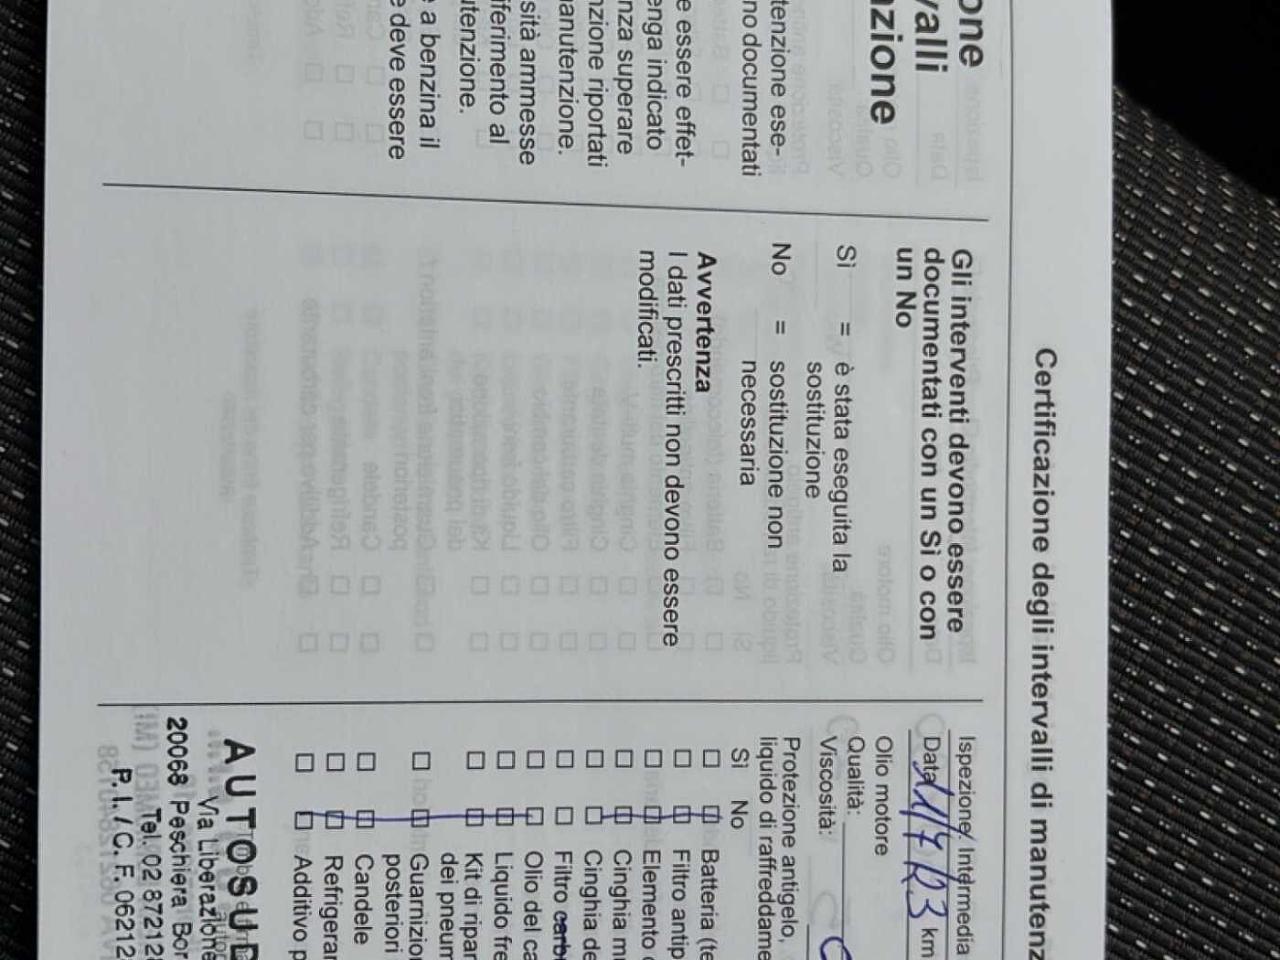 one
valli
zione
tenzione ese-
no documentati
e essere effet-
enga indicato
nza superare
nzione riportati
nanutenzione.
sità ammesse
iferimento al
utenzione.
e a benzina il
e deve essere
Certificazione degli intervalli di manutenz
Gli interventi devono essere
documentati con un Sì o con
un No
Sì = è stata eseguita la
sostituzione
No = sostituzione non
necessaria
Avvertenza
I dati prescritti non devono essere
modificati.
Ispezione/ Intermedia
Data km
Olio motore
Qualità:
Viscosità:
Protezione antigelo,
liquido di raffreddame
Sì No
Batteria (te
Filtro antip
Elemento
Cinghia mu
Cinghia de
Filtro carb
Olio del ca
Liquido fre
Kit di ripar
dei pneum
Guarnizion
posteriori
Candele
Refrigerar
Additivo p
AUTOSUD
Via Liberazione
20068 Peschiera Bor
Tel. 02 872128
P. I. / C. F. 06212